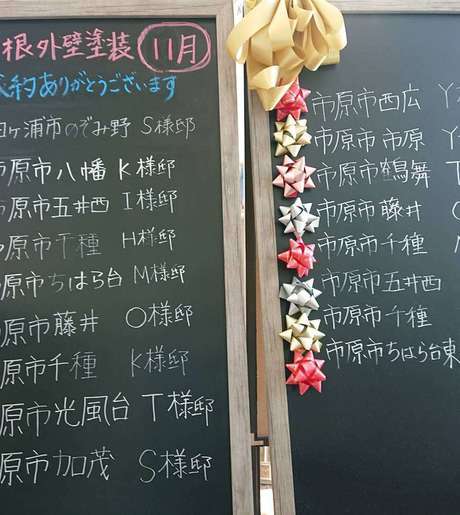 根外壁塗装 11月
約ありがとうございます
ケ浦市のぞみ野 S様邸
市原市八幡 K様邸
市原市五井西 I様邸
市原市千種 H様邸
原市ちはら台 M様邸
原市藤井 O様邸
原市千種 K様邸
原市光風台 T様邸
原市加茂 S様邸
市原市西広 Y
市原市市原 Y
市原市鶴舞 T
市原市藤井
市原市千種
市原市五井西
市原市千種
市原市ちはら台東